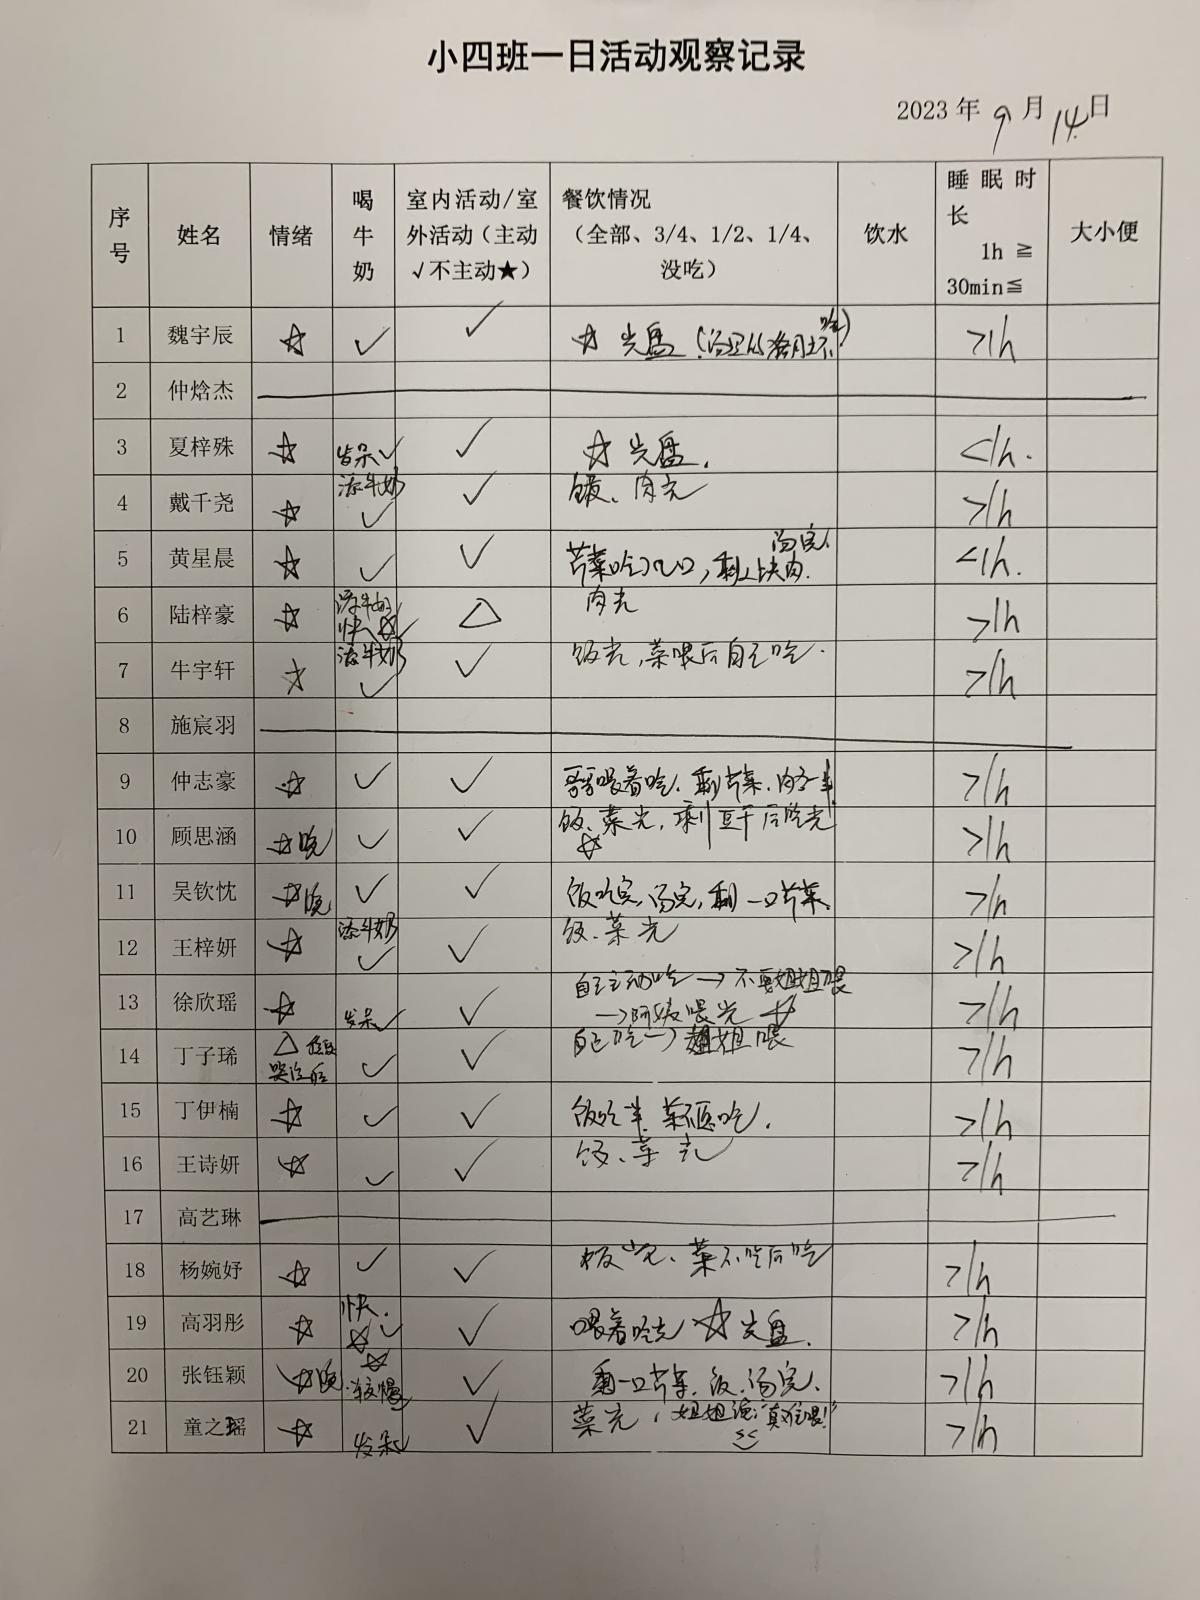 小四班一日活动观察记录
2023 年 9 月 14 日
序号 姓名 情绪 喝牛奶 室内活动/室外活动（主动√不主动★） 餐饮情况（全部、3/4、1/2、1/4、没吃） 饮水 睡眠时长 1h ≧ 30min≦ 大小便
1 魏宇辰 ☆ ✓ ✓ ☆ 光盘 >1h
2 仲焓杰
3 夏梓殊 ☆ 发呆 ✓ ✓ ☆ 光盘. <1h.
4 戴千尧 ☆ 添牛奶 ✓ ✓ 肉完 >1h
5 黄星晨 ☆ ✓ ✓ 芹菜吃了几口，剩上块肉. 汤完. <1h.
6 陆梓豪 ☆ 添牛奶 快 ☆ ✓ △ 肉光 >1h
7 牛宇轩 ☆ 添牛奶 ✓ ✓ 饭光，菜喂后自己吃. >1h
8 施宸羽
9 仲志豪 ☆ ✓ ✓ 哥哥喂着吃. 剩芹菜. 肉 >1h
10 顾思涵 ☆ ✓ ✓ 饭、菜光，剩豆干后吃光 ☆ >1h
11 吴钦忱 ☆ ✓ ✓ 饭吃完，汤完，剩一口芹菜. >1h
12 王梓妍 ☆ 添牛奶 ✓ ✓ 饭、菜光 >1h
13 徐欣瑶 ☆ 发呆 ✓ ✓ 自己主动吃 → 不要姐姐喂 → 阿姨喂光 ☆ >1h
14 丁子琋 △ ✓ ✓ 自己吃 → 姐姐喂 >1h
15 丁伊楠 ☆ ✓ ✓ 饭吃半. 菜不愿吃. >1h
16 王诗妍 ☆ ✓ ✓ 饭、菜光 >1h
17 高艺琳
18 杨婉妤 ☆ ✓ ✓ 饭光、菜不吃后吃 >1h
19 高羽彤 ☆ 快. ☆ ✓ ✓ 喂着吃光 ☆ 光盘. >1h
20 张钰颖 ☆ ☆ 较慢 ✓ 剩一口芹菜. 饭. 汤完. >1h
21 童之瑶 ☆ 发呆 ✓ ✓ 菜光， 姐姐 >1h